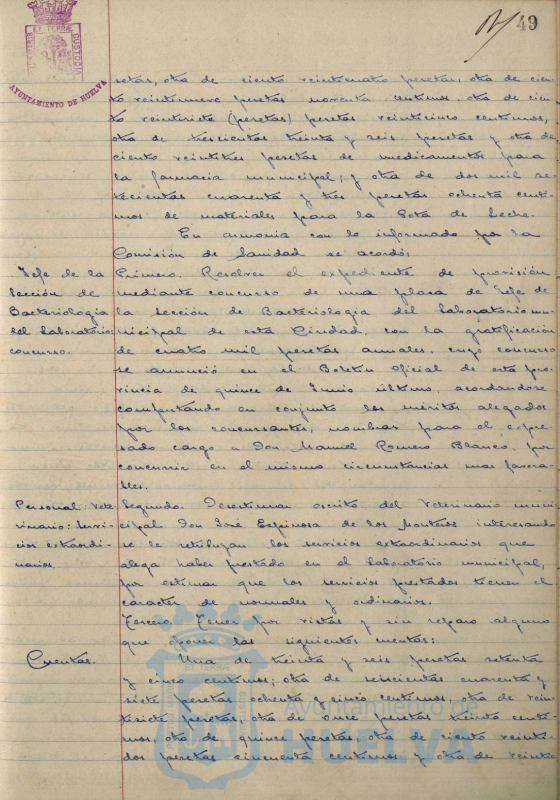 49
PORTUS MARIS ET TERRAE CUSTODIA
AYUNTAMIENTO DE HUELVA
setas, otra de ciento veinticuatro pesetas, otra de cien-
to veintinueve pesetas noventa centimos, otra de cien-
to veintisiete (pesetas) pesetas veinticinco centimos,
otra de trescientas treinta y seis pesetas y otra de
ciento veintitres pesetas de medicamentos para
la farmacia municipal; y otra de dos mil se-
tecientas cuarenta y tres pesetas ochenta centi-
mos de materiales para la Gota de Leche.
En armonia con lo informado por la
Comisión de Sanidad se acordó:
Jefe de la
Sección de
Bacteriología
del Laboratorio,
concurso.
Primero. Resolver el expediente de provisión
mediante concurso de una plaza de Jefe de
la sección de Bacteriología del Laboratorio mu-
nicipal de esta Ciudad, con la gratificación
de cuatro mil pesetas anuales, cuyo concurso
se anunció en el Boletin Oficial de esta pro-
vincia de quince de Junio último, acordandose
computando en conjunto los méritos alegados
por los concursantes, nombrar para el expre-
sado cargo a Don Manuel Romero Blanco, por
concurrir en el mismo circunstancias mas favora-
bles.
Personal: Vete-
rinario: Servi-
cios extraordi-
narios.
Segundo. Desestimar escrito del Veterinario muni-
cipal Don José Espinosa de los Monteros interesando
se le retribuyan los servicios extraordinarios que
alega haber prestado en el Laboratorio municipal,
por estimar que los servicios prestados tienen el
caracter de normales y ordinarios.
Tercero. Tener por vistas y sin reparo alguno
que oponer las siguientes cuentas:
Cuentas.
Una de treinta y seis pesetas setenta
y cinco centimos; otra de seiscientas cuarenta y
siete pesetas ochenta y cinco centimos, otra de vein-
tisiete pesetas, otra de once pesetas treinta centi-
mos, otra de quince pesetas, otra de ciento veinti-
dos pesetas cincuenta centimos y otra de veinte
Ayuntamiento de
HUELVA